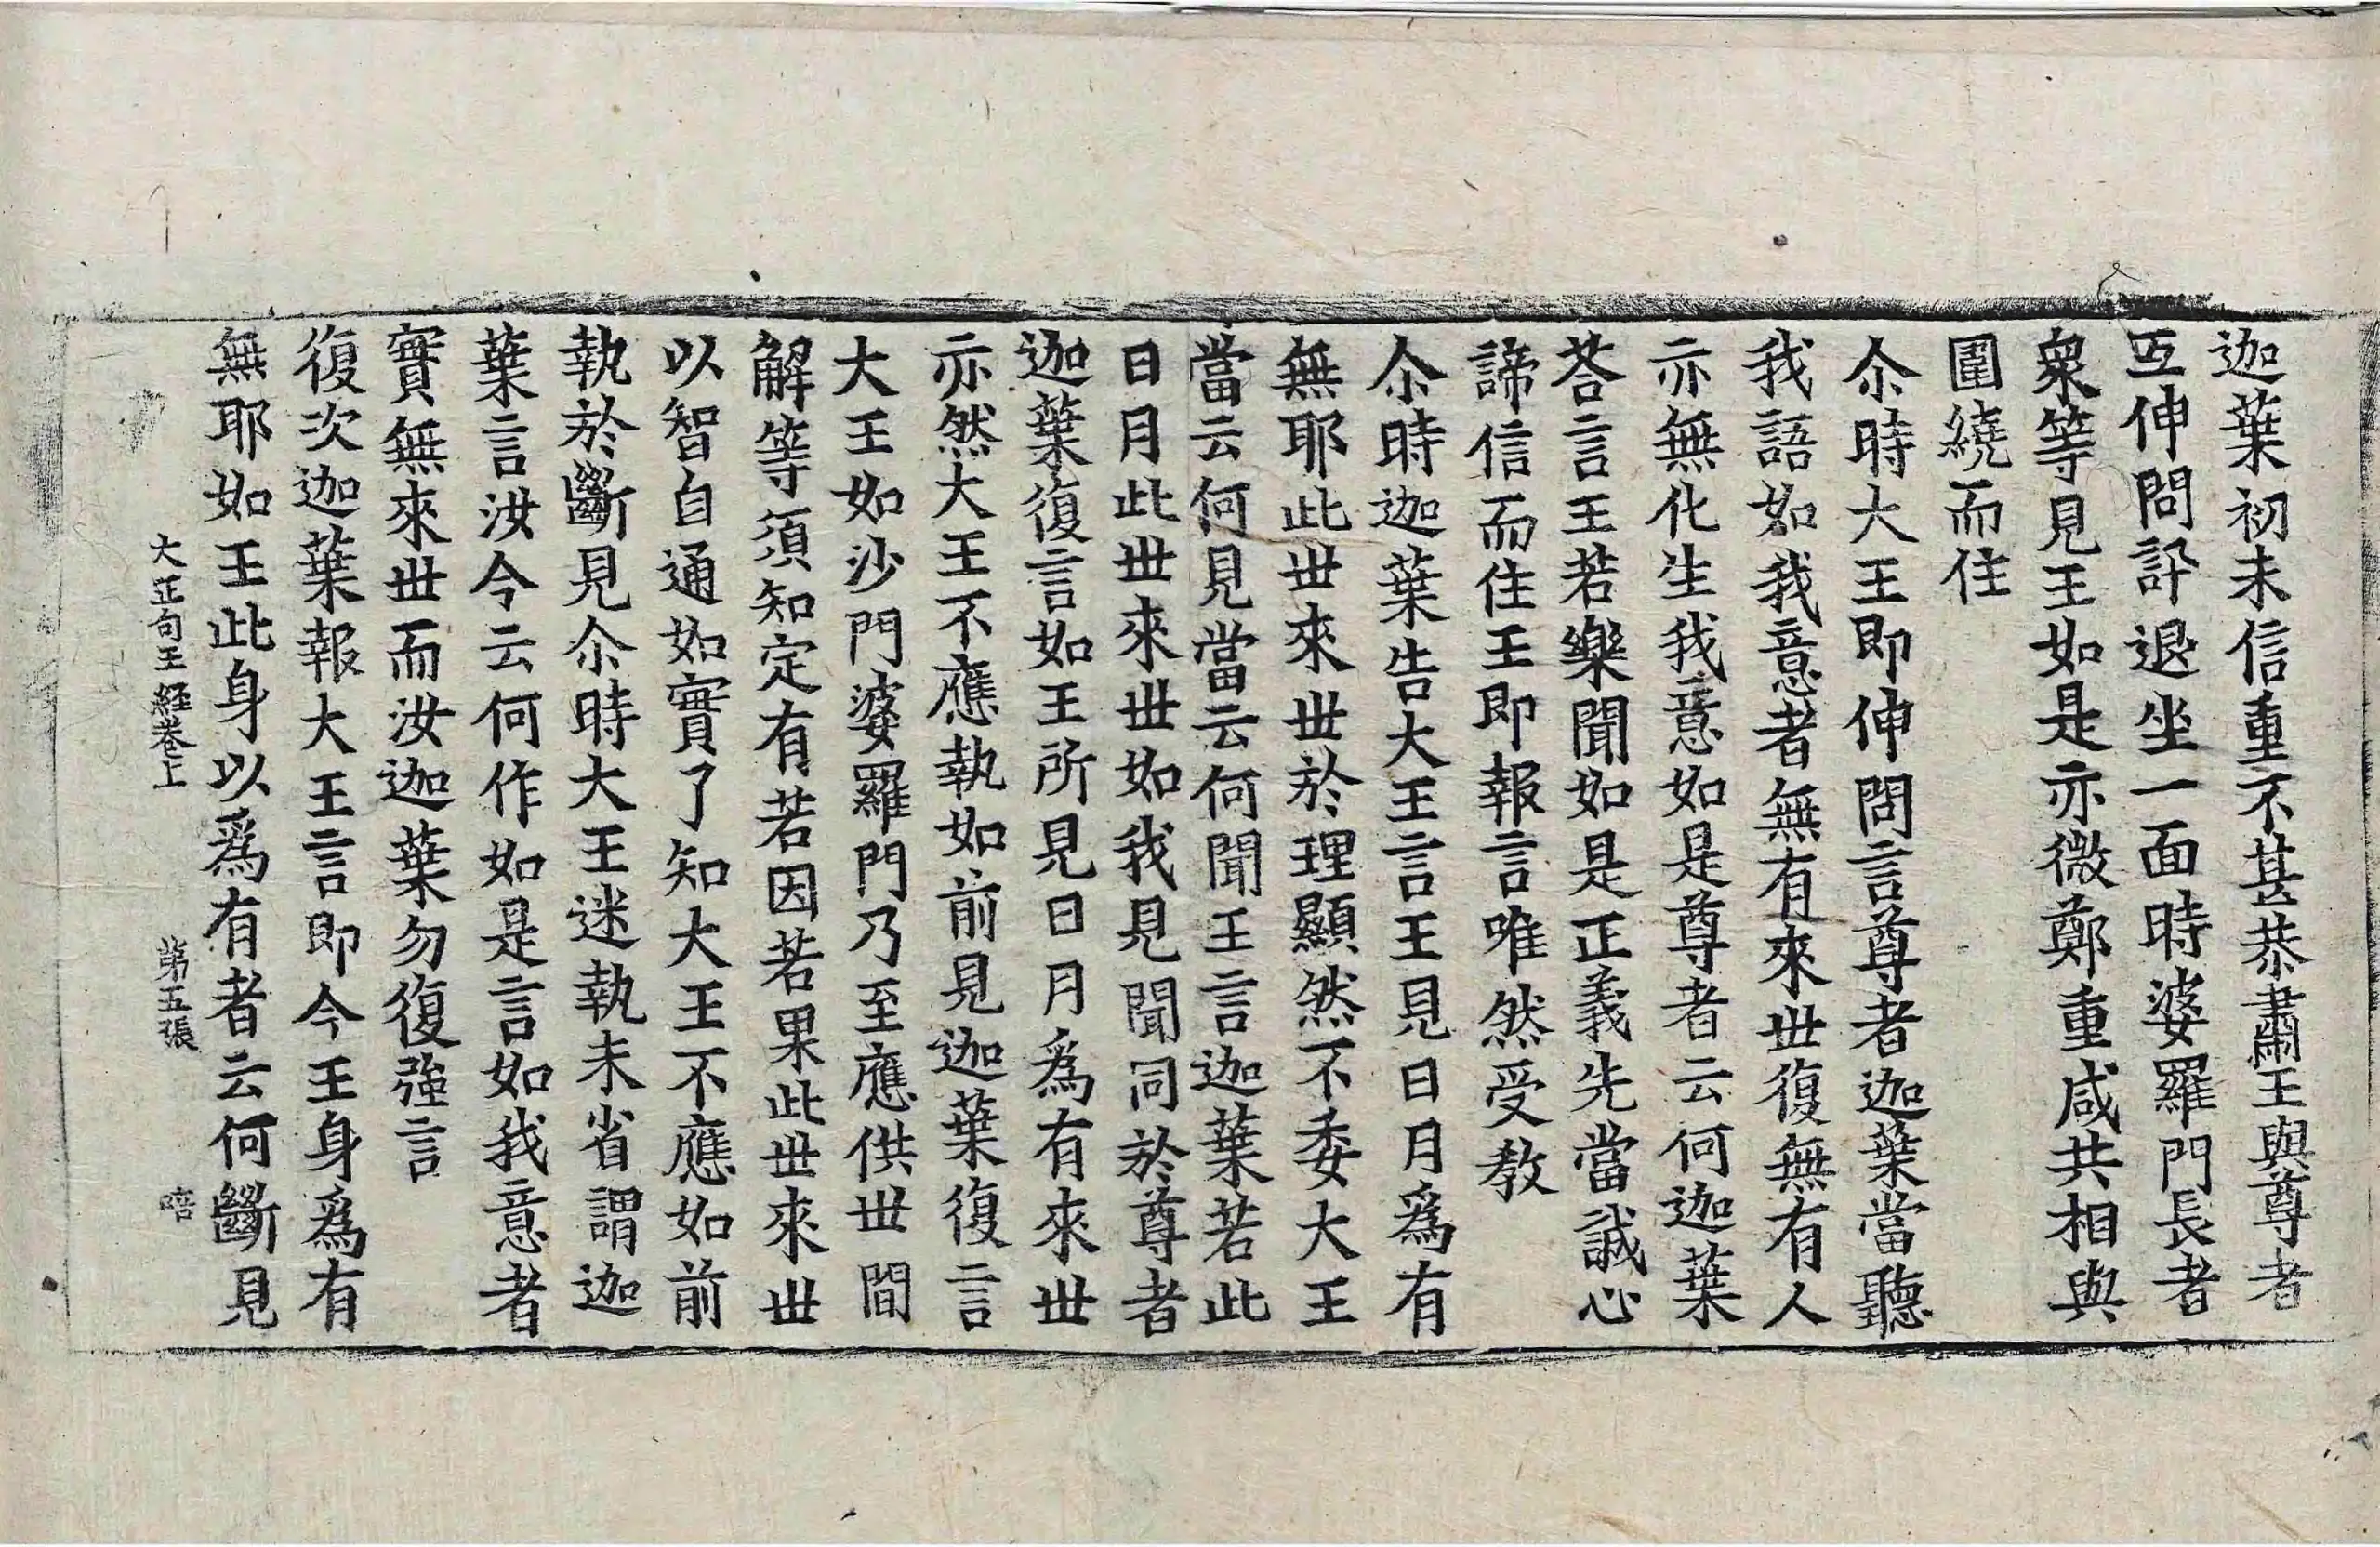 迦葉初未信重不甚恭肅王與尊者
互伸問訊退坐一面時婆羅門長者
衆等見王如是亦微鄭重咸共相與
圍繞而住
尒時大王即伸問言尊者迦葉當聽
我語如我意者無有來世復無有人
亦無化生我意如是尊者云何迦葉
荅言王若樂聞如是正義先當誠心
諦信而住王即報言唯然受教
尒時迦葉告大王言王見日月爲有
無耶此世來世於理顯然不委大王
當云何見當云何聞王言迦葉若此
日月此世來世如我見聞同於尊者
迦葉復言如王所見日月爲有來世
亦然大王不應執如前見迦葉復言
大王如沙門婆羅門乃至應供世間
解等須知定有若因若果此世來世
以智自通如實了知大王不應如前
執於斷見尒時大王迷執未省謂迦
葉言汝今云何作如是言如我意者
實無來世而汝迦葉勿復強言
復次迦葉報大王言即今王身爲有
無耶如王此身以爲有者云何斷見
大正句王經卷上 第五張